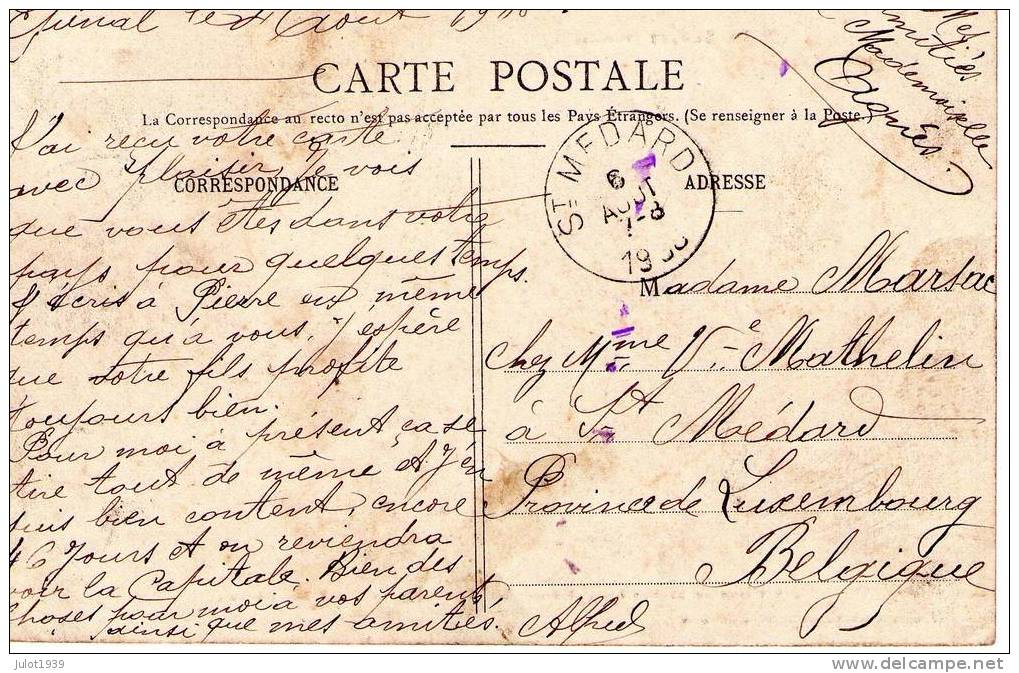 Epinal le 4 Aout
Mes
amitiés
Mademoiselle
Agnès.
CARTE POSTALE
La Correspondance au recto n'est pas acceptée par tous les Pays Étrangers. (Se renseigner à la Poste.)
CORRESPONDANCE
ADRESSE
J'ai reçu votre carte
avec plaisir, Je vois
que vous êtes dans votre
pays pour quelques temps.
J'écris à Pierre en même
temps qu'à vous, j'espère
que votre fils profite
toujours bien.
Pour moi à présent ça se
tire tout de même et J'en
suis bien content, encore
46 Jours et on reviendra
voir la Capitale. Bien des
choses pour moi à vos parents
ainsi que mes amitiés.
Alfred
ST MEDARD
6
AOUT
7-8
19
Madame Marsac
chez Mme Vve Mathelin
à St Médard
Province de Luxembourg
Belgique
julot1939
delcampe.net